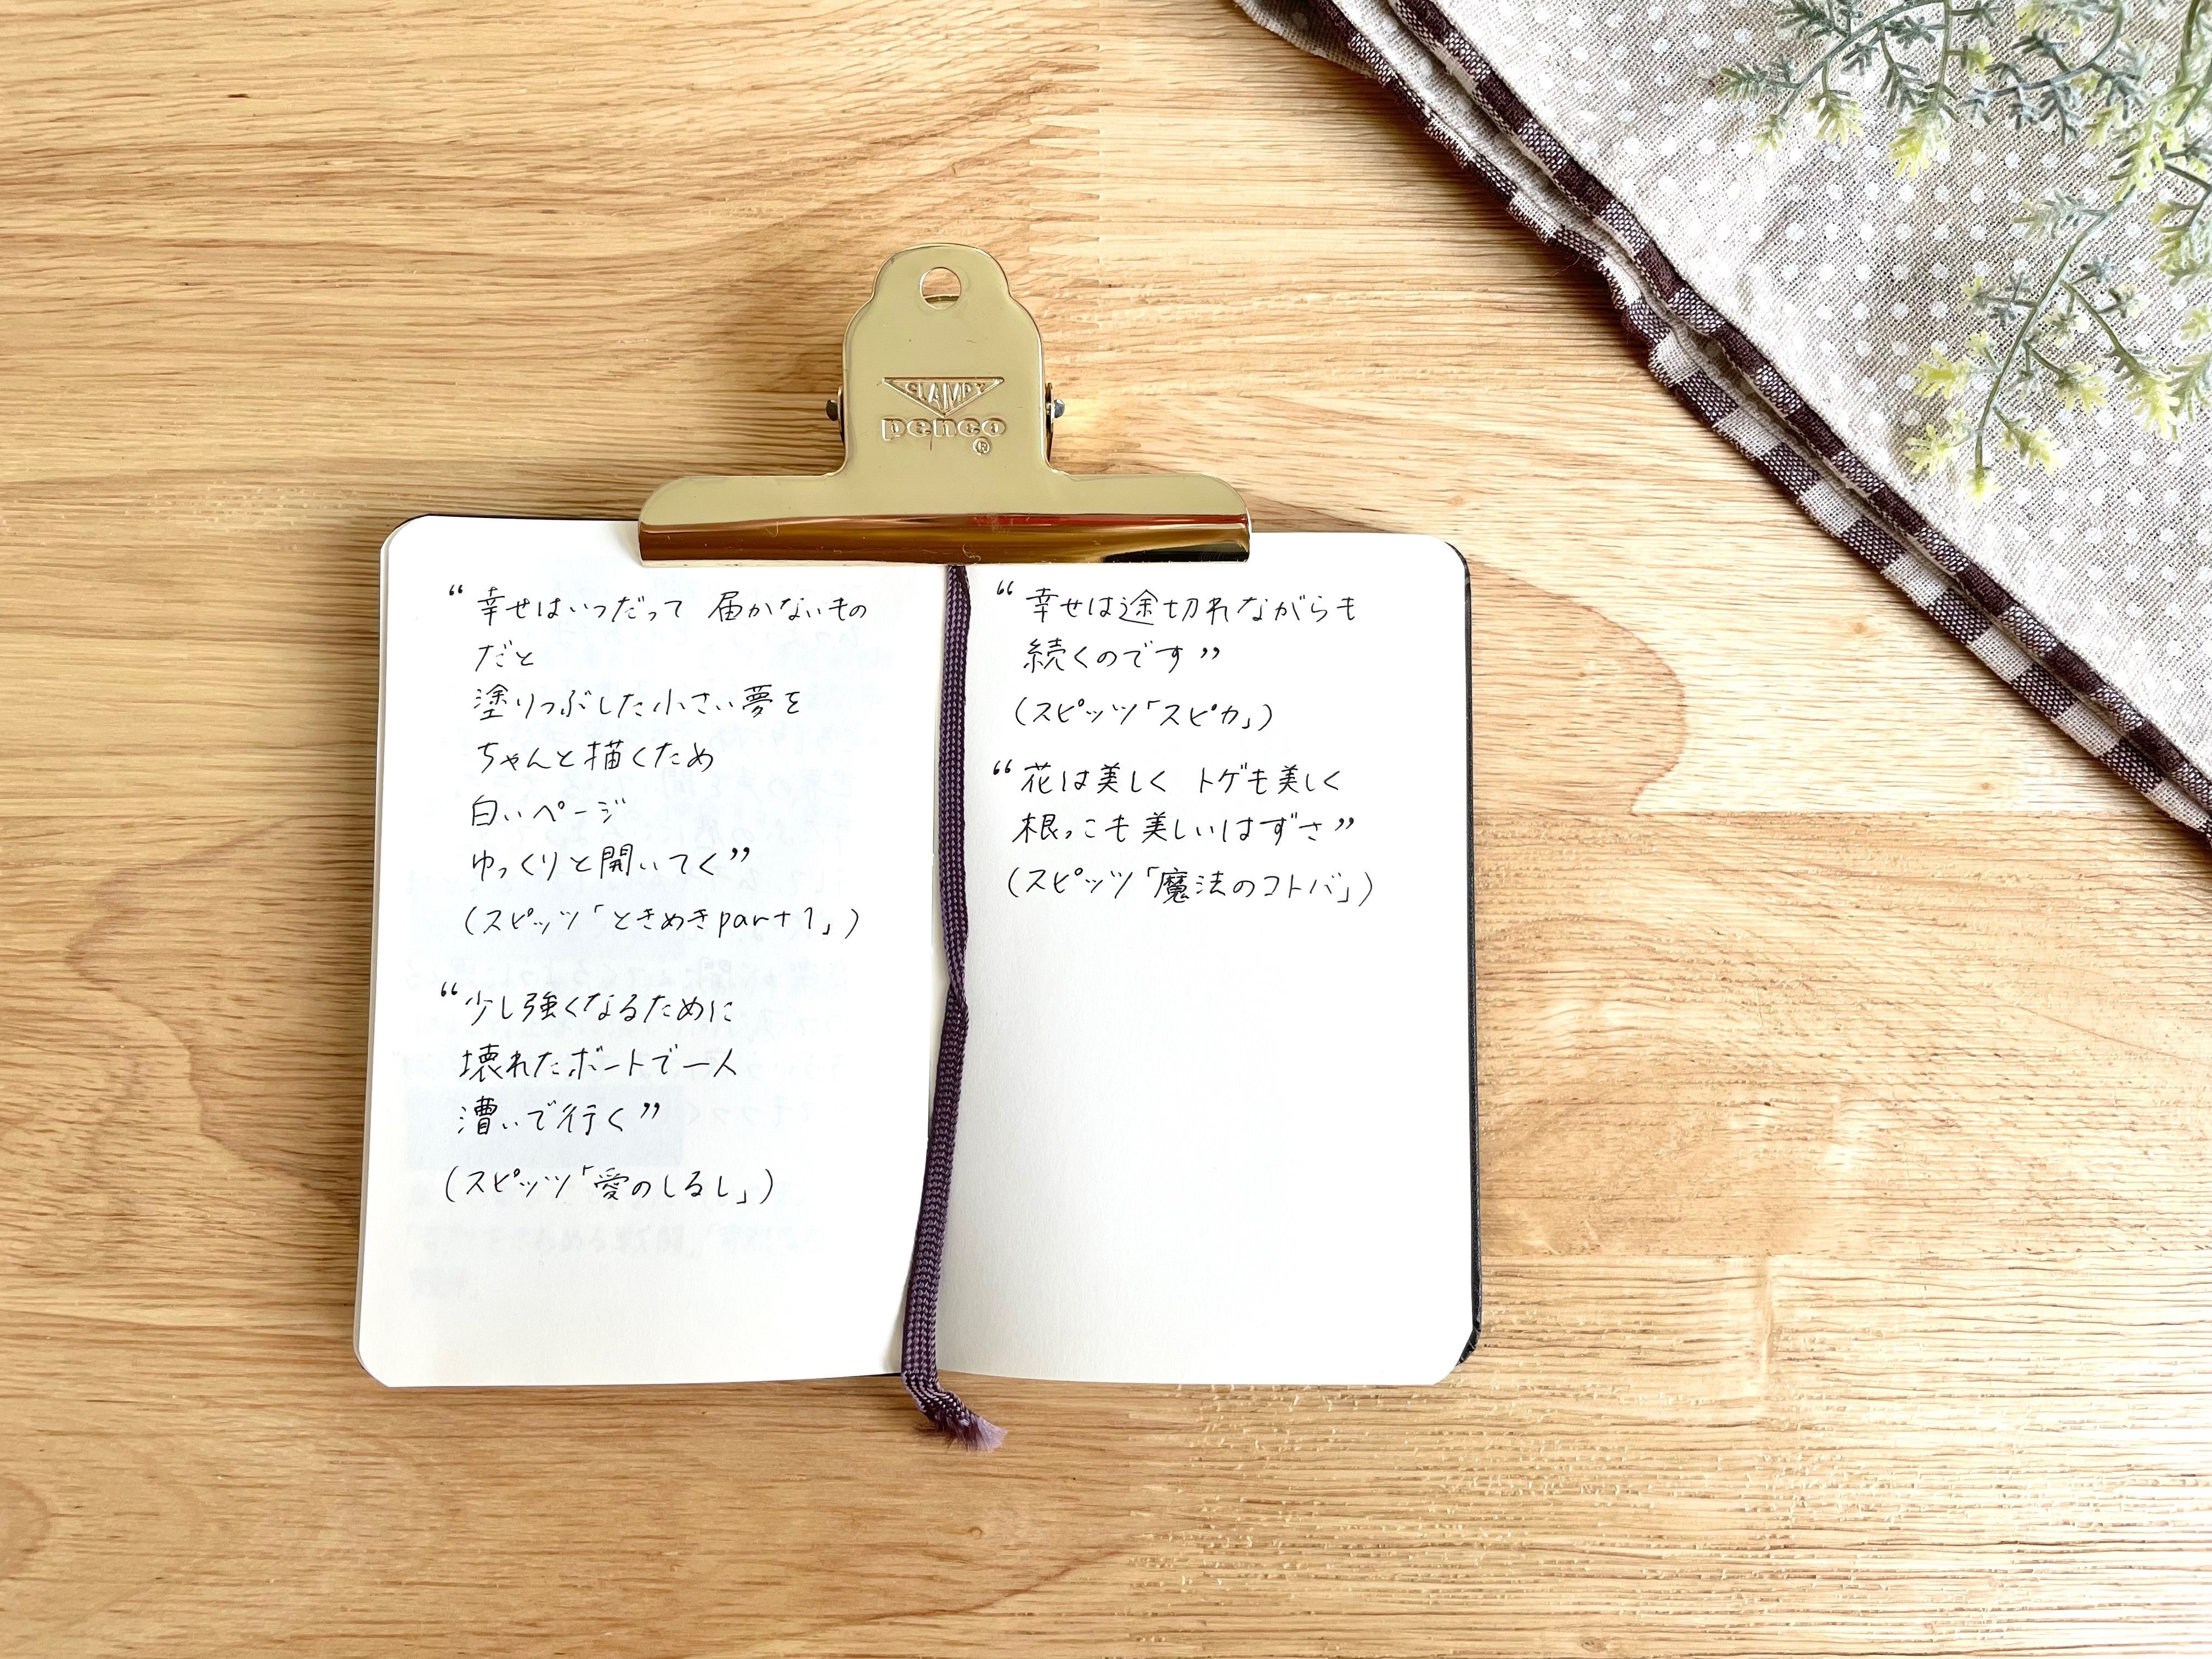 CLAMPY
penco
®
“幸せはいつだって 届かないもの
だと
塗りつぶした小さい夢を
ちゃんと描くため
白いページ
ゆっくりと開いてく”
(スピッツ「ときめきpart1」)
“少し強くなるために
壊れたボートで一人
漕いで行く”
(スピッツ「愛のしるし」)
“幸せは途切れながらも
続くのです”
(スピッツ「スピカ」)
“花は美しく トゲも美しく
根っこも美しいはずさ”
(スピッツ「魔法のコトバ」)